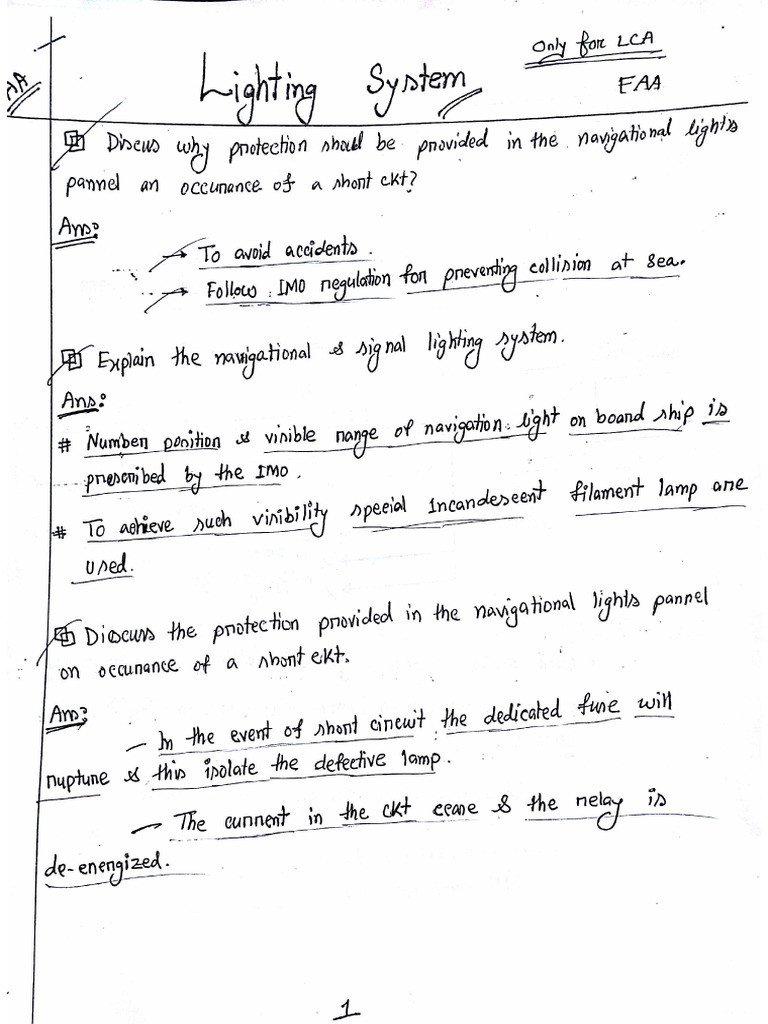 Only for LCA
Lighting System
FAA
AA
Discus why protection should be provided in the navigational lights
pannel an occurance of a short ckt?
Ans:
→ To avoid accidents.
→ Follow IMO regulation for preventing collision at sea.
Explain the navigational & signal lighting system.
Ans:
# Number position & visible range of navigation light on board ship is
prescribed by the IMO.
# To achieve such visibility special Incandescent filament lamp are
used.
Discuss the protection provided in the navigational lights pannel
on occurance of a short ckt.
Ans:
– In the event of short circuit the dedicated fuse will
rupture & this isolate the defective lamp.
– The current in the ckt cease & the relay is
de-energized.
1